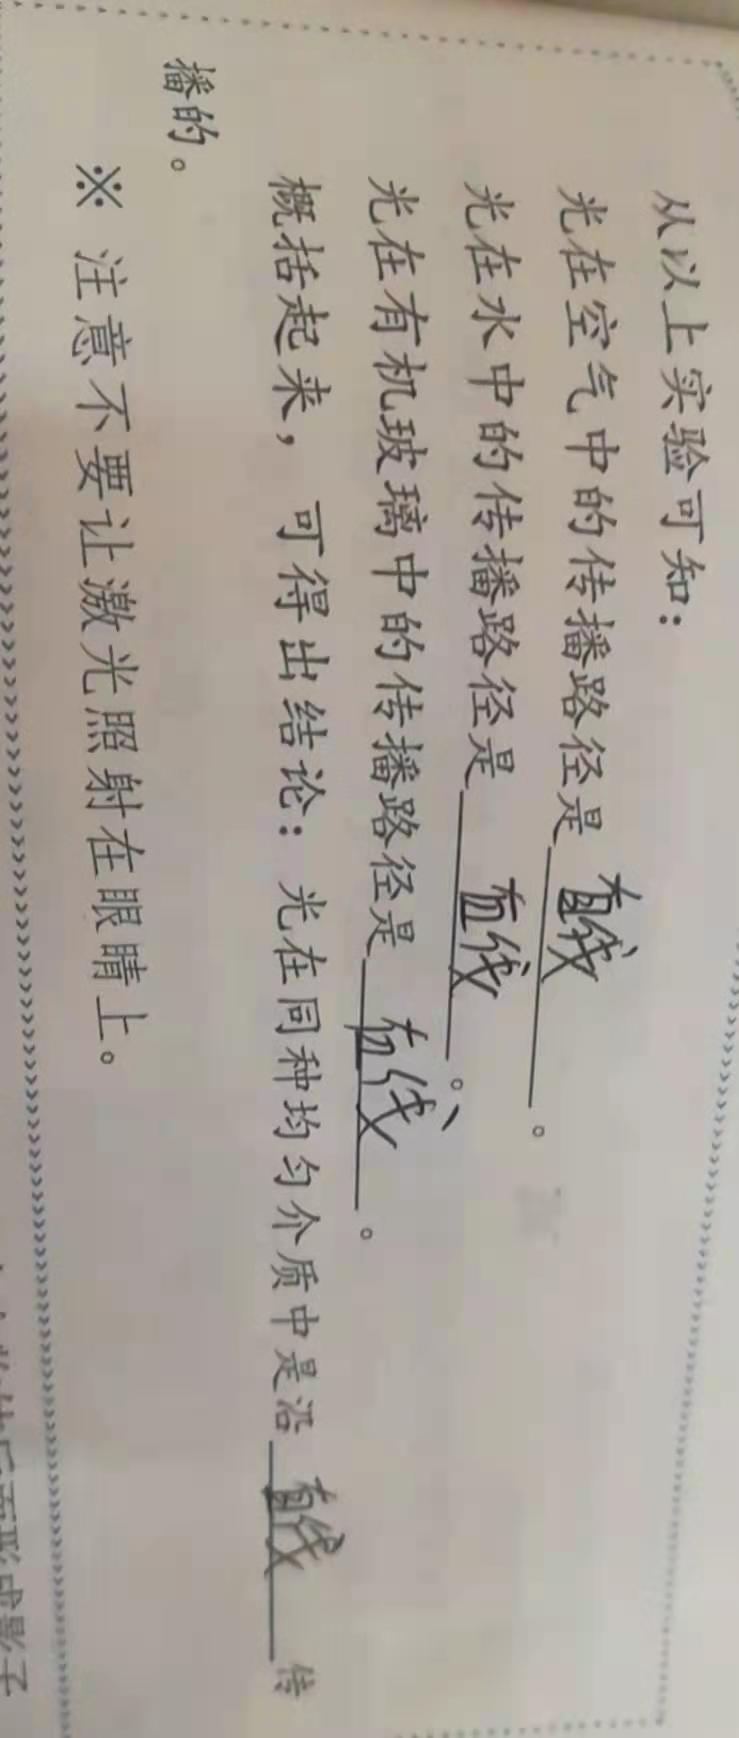 从以上实验可知：
光在空气中的传播路径是 直线 。
光在水中的传播路径是 直线 。
光在有机玻璃中的传播路径是 直线 。
概括起来，可得出结论：光在同种均匀介质中是沿 直线 传
播的。
※ 注意不要让激光照射在眼睛上。
后面形成影子